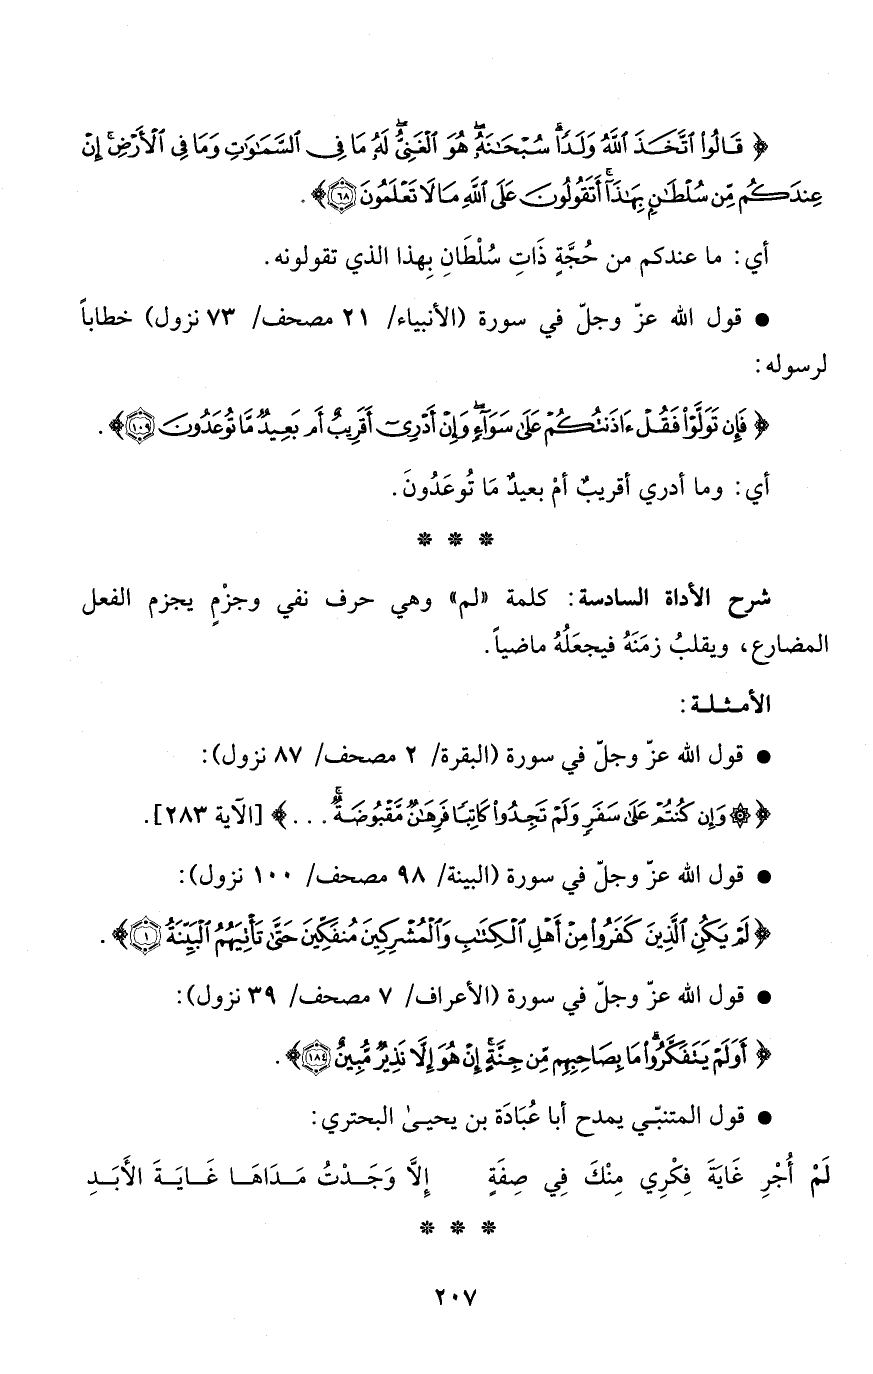 ﴿ قَالُوا۟ ٱتَّخَذَ ٱللَّهُ وَلَدًا ۗ سُبْحَٰنَهُۥ ۖ هُوَ ٱلْغَنِىُّ ۖ لَهُۥ مَا فِى ٱلسَّمَٰوَٰتِ وَمَا فِى ٱلْأَرْضِ ۚ إِنْ
عِندَكُم مِّن سُلْطَٰنٍۭ بِهَٰذَآ ۚ أَتَقُولُونَ عَلَى ٱللَّهِ مَا لَا تَعْلَمُونَ ٦٨ ﴾.
أي: ما عندكم من حُجَّةٍ ذَاتِ سُلْطَانٍ بِهذا الذي تقولونه.
● قول الله عزّ وجلّ في سورة (الأنبياء/ ٢١ مصحف/ ٧٣ نزول) خطاباً
لرسوله:
﴿ فَإِن تَوَلَّوْا۟ فَقُلْ ءَاذَنتُكُمْ عَلَىٰ سَوَآءٍ ۖ وَإِنْ أَدْرِىٓ أَقَرِيبٌ أَم بَعِيدٌ مَّا تُوعَدُونَ ١٠٩ ﴾.
أي: وما أدري أقريبٌ أمْ بعيدٌ مَا تُوعَدُونَ.
* * *
شرح الأداة السادسة: كلمة «لم» وهي حرف نفي وجزْمٍ يجزم الفعل
المضارع، ويقلبُ زمَنَهُ فيجعَلُهُ ماضياً.
الأمثلة:
● قول الله عزّ وجلّ في سورة (البقرة/ ٢ مصحف/ ٨٧ نزول):
﴿ ۞ وَإِن كُنتُمْ عَلَىٰ سَفَرٍ وَلَمْ تَجِدُوا۟ كَاتِبًا فَرِهَٰنٌ مَّقْبُوضَةٌ ۖ ... ﴾ [الآية ٢٨٣].
● قول الله عزّ وجلّ في سورة (البينة/ ٩٨ مصحف/ ١٠٠ نزول):
﴿ لَمْ يَكُنِ ٱلَّذِينَ كَفَرُوا۟ مِنْ أَهْلِ ٱلْكِتَٰبِ وَٱلْمُشْرِكِينَ مُنفَكِّينَ حَتَّىٰ تَأْتِيَهُمُ ٱلْبَيِّنَةُ ١ ﴾.
● قول الله عزّ وجلّ في سورة (الأعراف/ ٧ مصحف/ ٣٩ نزول):
﴿ أَوَلَمْ يَتَفَكَّرُوا۟ ۗ مَا بِصَاحِبِهِم مِّن جِنَّةٍ ۚ إِنْ هُوَ إِلَّا نَذِيرٌ مُّبِينٌ ١٨٤ ﴾.
● قول المتنبّي يمدح أبا عُبَادَة بن يحيىٰ البحتري:
لَمْ أُجْرِ غَايَةَ فِكْرِي مِنْكَ فِي صِفَةٍ إِلاَّ وَجَدْتُ مَدَاهَا غَايَةَ الأَبَدِ
* * *
٢٠٧